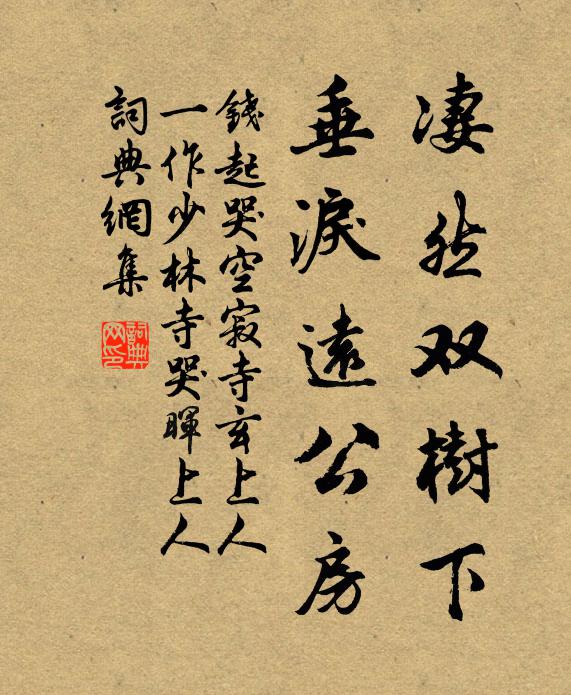 凄然双樹下
垂淚遠公房
錢起哭空寂寺玄上人
一作少林寺哭暉上人
詞典網集
詞典网印